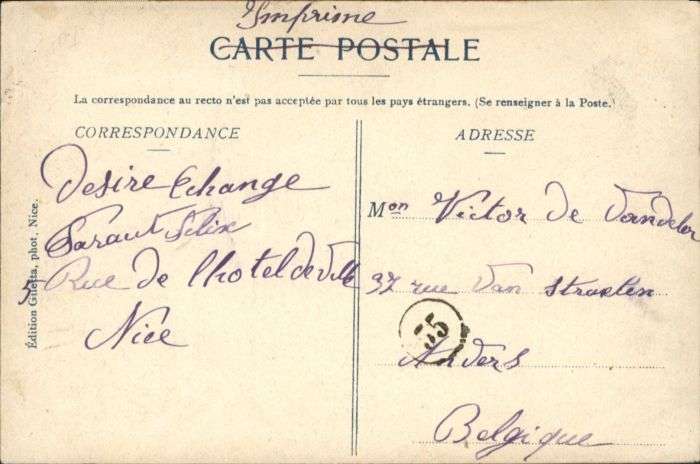 Imprime
CARTE POSTALE
La correspondance au recto n'est pas acceptée par tous les pays étrangers. (Se renseigner à la Poste.)
CORRESPONDANCE
Desire Echange
Faraut Felix
5 Rue de l'hotel de Ville
Nice
Édition Giletta, phot. Nice.
ADRESSE
Mon Victor De Vandeler
37 rue Van Straelen
55
Anvers
Belgique